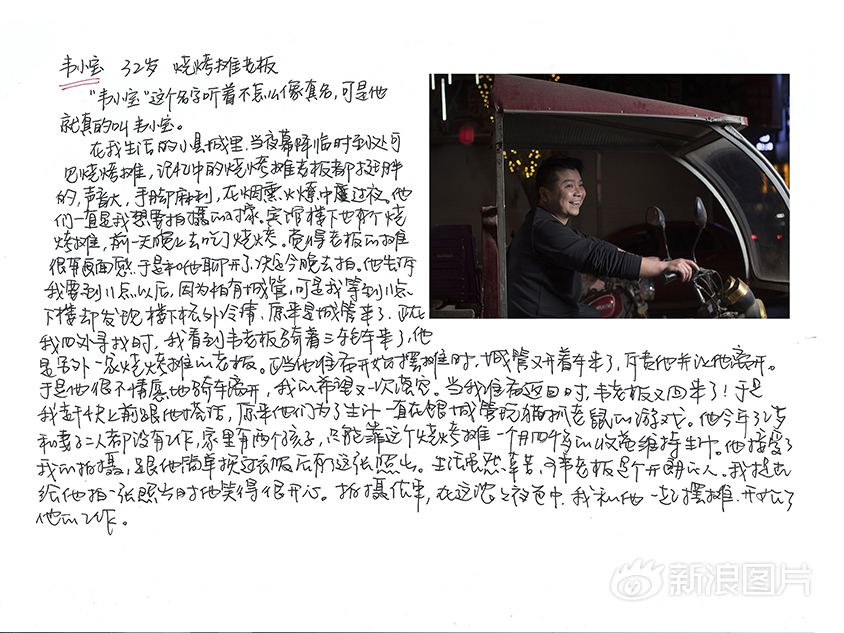 韦小宝 32岁 烧烤摊老板
“韦小宝”这个名字听着不怎么像真名,可是他
就真的叫韦小宝。
在我生活的小县城里,当夜幕降临时到处可
见烧烤摊,记忆中的烧烤摊老板都挺胖
的,声音大,手脚麻利,在烟熏火燎中度过夜。他
们一直是我想要拍摄的对象。宾馆楼下也有个烧
烤摊,前一天晚上去吃了烧烤。觉得老板的摊
很有画面感,于是和他聊开了,决定今晚去拍。他告诉
我要到11点以后,因为怕有城管,可是我等到11点
下楼却发现楼下格外冷清,原来是城管来了,正在
我四处寻找时,我看到韦老板骑着三轮车来了,他
是另外一家烧烤摊的老板。正当他准备开始摆摊时,城管又开着车来了,斥责他并让他离开。
于是他很不情愿地骑车离开,我的希望又一次落空。当我准备返回时,韦老板又回来了!于是
我赶快上前跟他搭话,原来他们为了生计一直在跟城管玩猫抓老鼠的游戏。他今年32岁
和妻子二人都没有工作,家里有两个孩子,只能靠这个烧烤摊一个月四千多的收益维持生计。他接受了
我的拍摄,跟他简单换过衣服后有了这张照片。生活虽然辛苦,可韦老板是个开朗的人。我提出
给他拍一张照片时他笑得很开心。拍摄结束,在这浓浓夜色中,我和他一起摆摊,开始了
他的工作。
新浪图片